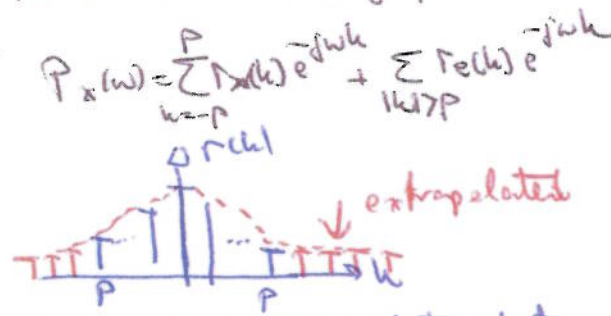 P_x(w) = Σ_{k=-p}^{p} r_x(k) e^{-jwk} + Σ_{|k|>p} r_e(k) e^{-jwk}
r(k)
extrapolated
P
P
k